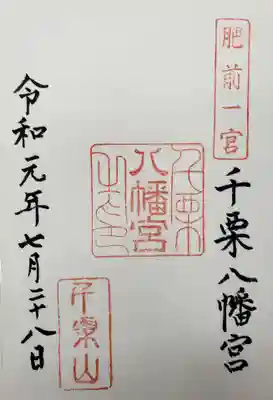 肥前一宮
千栗八幡宮
千栗
八幡宮
千栗山
令和元年七月二十八日